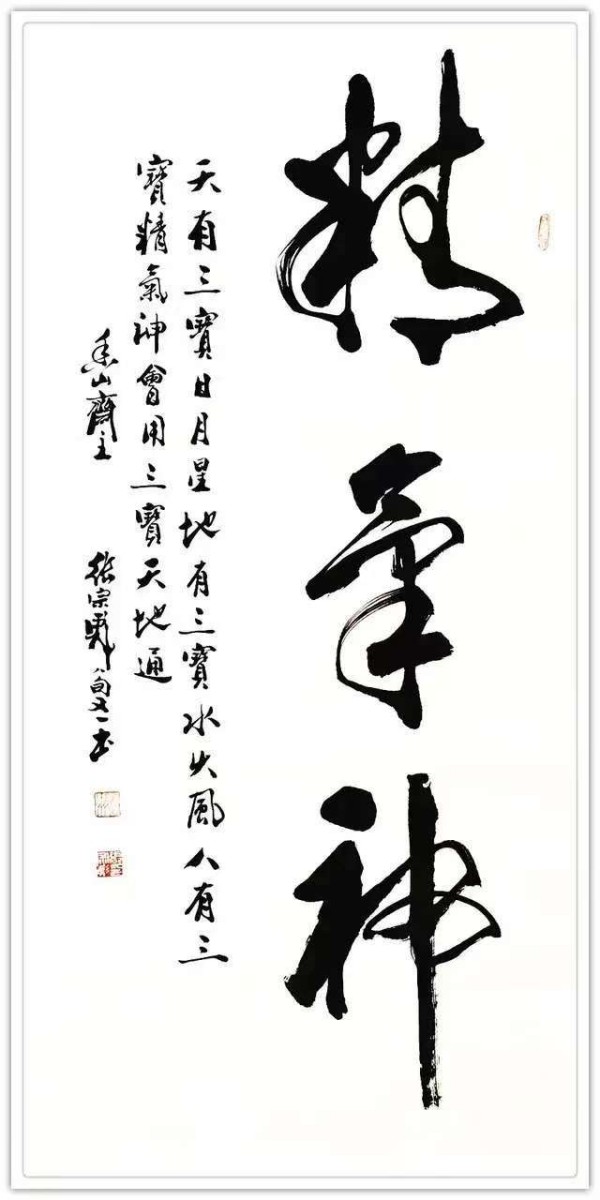 精氣神
天有三寶日月星地有三寶水火風人有三
寶精氣神會用三寶天地通
山齋主
張宗彪八旬又一書